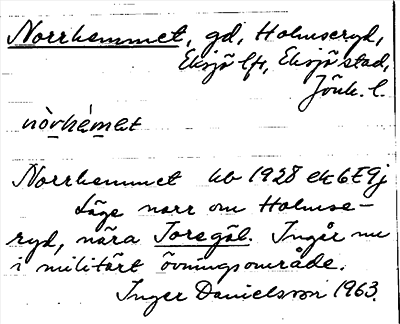 Norrhemmet, gd, Holmseryd,
Eksjö lfs, Eksjö stad,
Jönk. l.
nòrhèmet
Norrhemmet hb 1928 ek 6E9j
Läge norr om Holmse-
ryd, nära Toregöl. Ingår nu
i militärt övningsområde.
Inger Danielsson 1963.